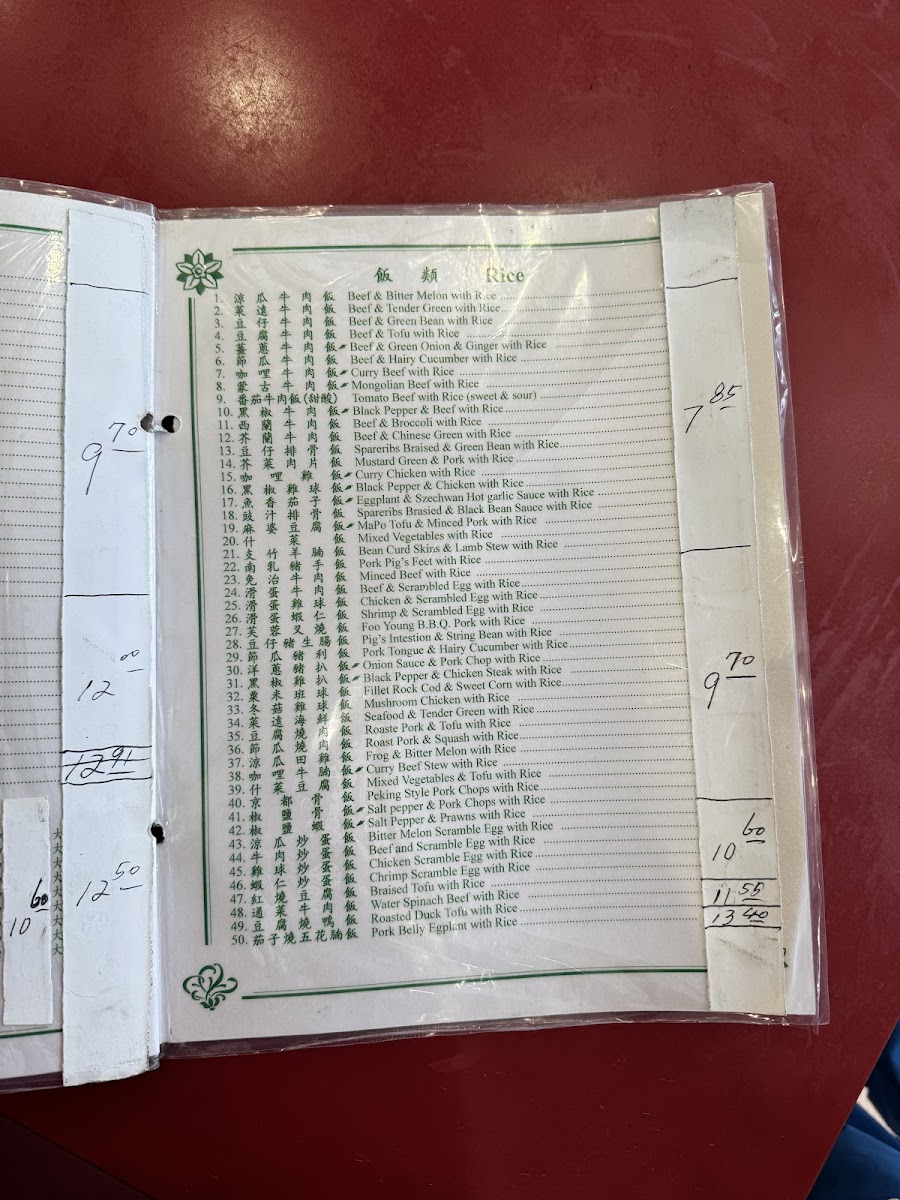 飯 類 Rice
1. 涼瓜牛肉飯 Beef & Bitter Melon with Rice
2. 菜遠牛肉飯 Beef & Tender Green with Rice
3. 豆仔牛肉飯 Beef & Green Bean with Rice
4. 豆腐牛肉飯 Beef & Tofu with Rice
5. 薑蔥牛肉飯 Beef & Green Onion & Ginger with Rice
6. 節瓜牛肉飯 Beef & Hairy Cucumber with Rice
7. 咖哩牛肉飯 Curry Beef with Rice
8. 蒙古牛肉飯 Mongolian Beef with Rice
9. 番茄牛肉飯(甜酸) Tomato Beef with Rice (sweet & sour)
10. 黑椒牛肉飯 Black Pepper & Beef with Rice
11. 西蘭牛肉飯 Beef & Broccoli with Rice
12. 芥蘭牛肉飯 Beef & Chinese Green with Rice
13. 豆仔排骨飯 Spareribs Braised & Green Bean with Rice
14. 芥菜肉片飯 Mustard Green & Pork with Rice
15. 咖哩雞飯 Curry Chicken with Rice
16. 黑椒雞球飯 Black Pepper & Chicken with Rice
17. 魚香茄子飯 Eggplant & Szechwan Hot garlic Sauce with Rice
18. 豉汁排骨飯 Spareribs Brasied & Black Bean Sauce with Rice
19. 麻婆豆腐飯 MaPo Tofu & Minced Pork with Rice
20. 什菜飯 Mixed Vegetables with Rice
21. 支竹羊腩飯 Bean Curd Skins & Lamb Stew with Rice
22. 南乳豬手飯 Pork Pig's Feet with Rice
23. 免治牛肉飯 Minced Beef with Rice
24. 滑蛋牛肉飯 Beef & Scrambled Egg with Rice
25. 滑蛋雞球飯 Chicken & Scrambled Egg with Rice
26. 滑蛋蝦仁飯 Shrimp & Scrambled Egg with Rice
27. 芙蓉叉燒飯 Foo Young B.B.Q. Pork with Rice
28. 豆仔豬生腸飯 Pig's Intestion & String Bean with Rice
29. 節瓜豬利飯 Pork Tongue & Hairy Cucumber with Rice
30. 洋蔥豬扒飯 Onion Sauce & Pork Chop with Rice
31. 黑椒雞扒飯 Black Pepper & Chicken Steak with Rice
32. 粟米班球飯 Fillet Rock Cod & Sweet Corn with Rice
33. 冬菇雞球飯 Mushroom Chicken with Rice
34. 菜遠海鮮飯 Seafood & Tender Green with Rice
35. 豆腐燒肉飯 Roaste Pork & Tofu with Rice
36. 節瓜燒肉飯 Roast Pork & Squash with Rice
37. 涼瓜田雞飯 Frog & Bitter Melon with Rice
38. 咖哩牛腩飯 Curry Beef Stew with Rice
39. 什菜豆腐飯 Mixed Vegetables & Tofu with Rice
40. 京都骨飯 Peking Style Pork Chops with Rice
41. 椒鹽骨飯 Salt pepper & Pork Chops with Rice
42. 椒鹽蝦飯 Salt Pepper & Prawns with Rice
43. 涼瓜炒蛋飯 Bitter Melon Scramble Egg with Rice
44. 牛肉炒蛋飯 Beef and Scramble Egg with Rice
45. 雞球炒蛋飯 Chicken Scramble Egg with Rice
46. 蝦仁炒蛋飯 Chrimp Scramble Egg with Rice
47. 紅燒豆腐飯 Braised Tofu with Rice
48. 通菜牛肉飯 Water Spinach Beef with Rice
49. 豆腐燒鴨飯 Roasted Duck Tofu with Rice
50. 茄子燒五花腩飯 Pork Belly Egplant with Rice
7 85
9 70
10 60
11 55
13 40
9 70
12 00
12 91
12 50
10 60
大
大
大
大
大
大
大
大
大
大